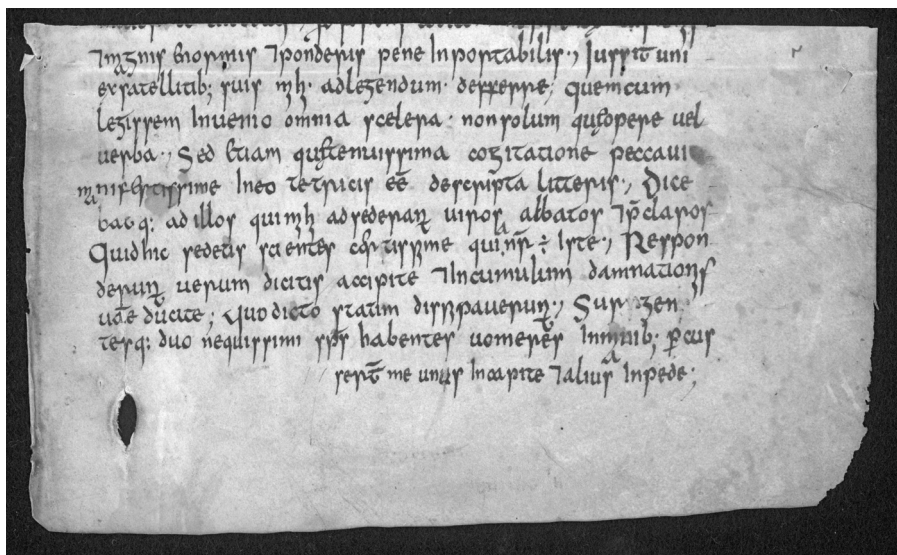 ⁊magnis enormis ⁊ponderis pene Inportabilis·, Iussit uni
exsatellitib; suis mh· adlegendum· defferre; quemcum·
legissem Inuenio omnia scelera· nonsolum qu opere uel
uerba·, Sed Etiam qu tenuissima cogitatione peccaui
manifestissime Ineo tetricis eē descripta litteris·, Dice
batq: ad illos qui mh adsederant uiros albatos ⁊p̄claros
Quidhic sedetis scientes certissime quia nr̄ ÷ Iste·, Respon
derunt uerum dicitis accipite ⁊Incumulum damnationis
ducite; Quo dicto statim Sur gen
tesq: duo nequissimi sp̄s habentes uomeres Inmanib; percus
sert̄ me unus Incapite ⁊alius Inpede;